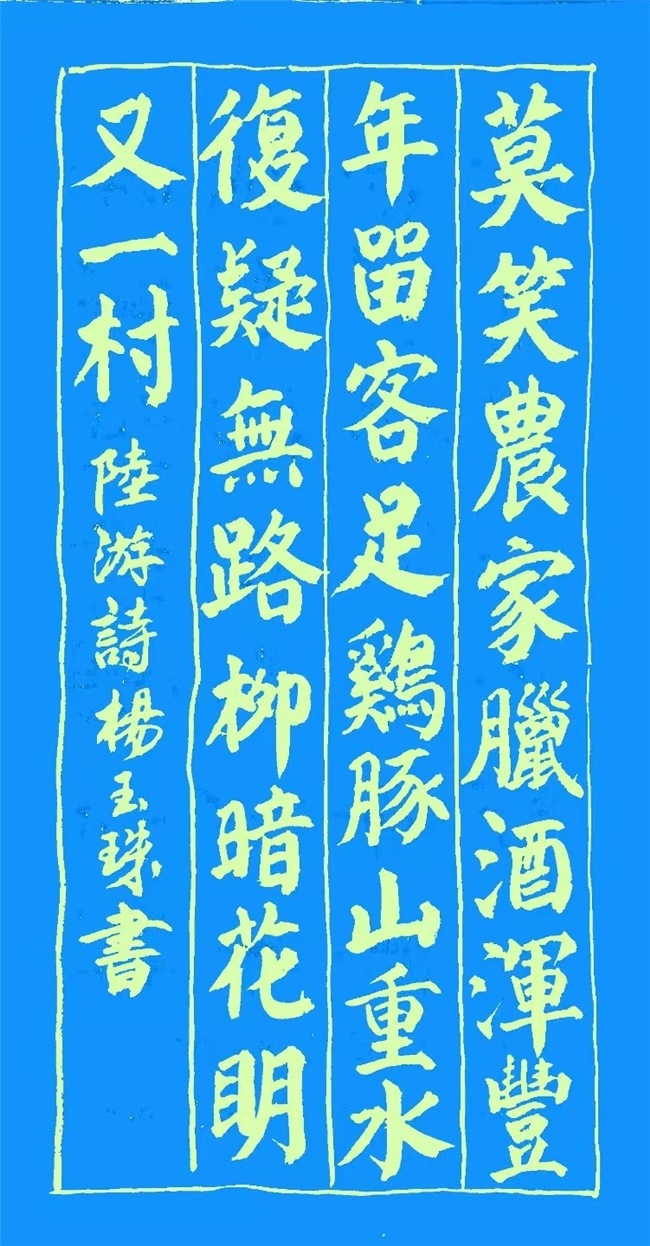 莫笑農家臘酒渾豐
年留客足鷄豚山重水
復疑無路柳暗花明
又一村 陸游詩楊玉珠書